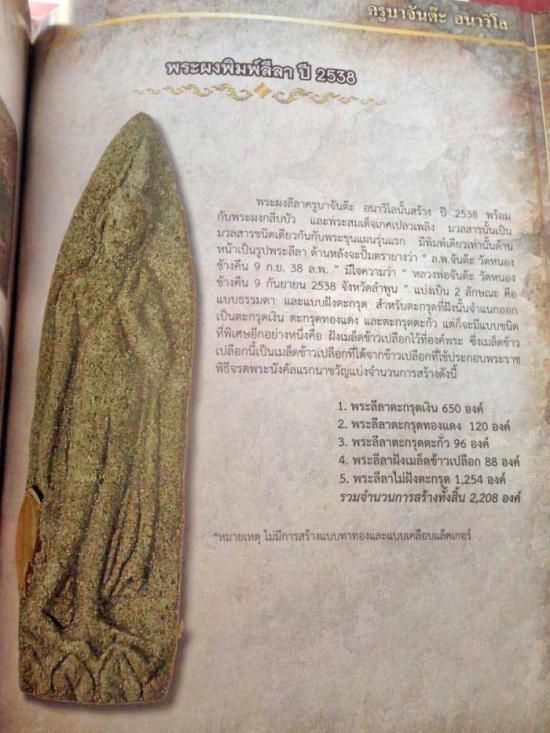 ครูบาจันต๊ะ อนาวิโล
พระผงพิมพ์ลีลา ปี 2538
พระผงลีลาครูบาจันต๊ะ อนาวิโลนั้นสร้าง ปี 2538 พร้อม
กับพระผงกลีบบัว และพระสมเด็จเกศเปลวเพลิง มวลสารนั้นเป็น
มวลสารชนิดเดียวกันกับพระขุนแผนรุ่นแรก มีพิมพ์เดียวเท่านั้นด้าน
หน้าเป็นรูปพระลีลา ด้านหลังจะปั๊มตรายางว่า “ ล.พ.จันต๊ะ วัดหนอง
ช้างคืน 9 ก.ย. 38 ล.พ. ” มีใจความว่า “ หลวงพ่อจันต๊ะ วัดหนอง
ช้างคืน 9 กันยายน 2538 จังหวัดลำพูน ” แบ่งเป็น 2 ลักษณะ คือ
แบบธรรมดา และแบบฝังตะกรุด สำหรับตะกรุดที่ฝังนั้นจำแนกออก
เป็นตะกรุดเงิน ตะกรุดทองแดง และตะกรุดตะกั่ว แต่ก็จะมีแบบชนิด
ที่พิเศษอีกอย่างหนึ่งคือ ฝังเมล็ดข้าวเปลือกไว้ที่องค์พระ ซึ่งเมล็ดข้าว
เปลือกนี้เป็นเมล็ดข้าวเปลือกที่ได้จากข้าวเปลือกที่ใช้ประกอบพระราช
พิธีจรดพระนังคัลแรกนาขวัญแบ่งจำนวนการสร้างดังนี้
1. พระลีลาตะกรุดเงิน 650 องค์
2. พระลีลาตะกรุดทองแดง 120 องค์
3. พระลีลาตะกรุดตะกั่ว 96 องค์
4. พระลีลาฝังเมล็ดข้าวเปลือก 88 องค์
5. พระลีลาไม่ฝังตะกรุด 1,254 องค์
รวมจำนวนการสร้างทั้งสิ้น 2,208 องค์
*หมายเหตุ ไม่มีการสร้างแบบทาทองและแบบเคลือบแล็คเกอร์